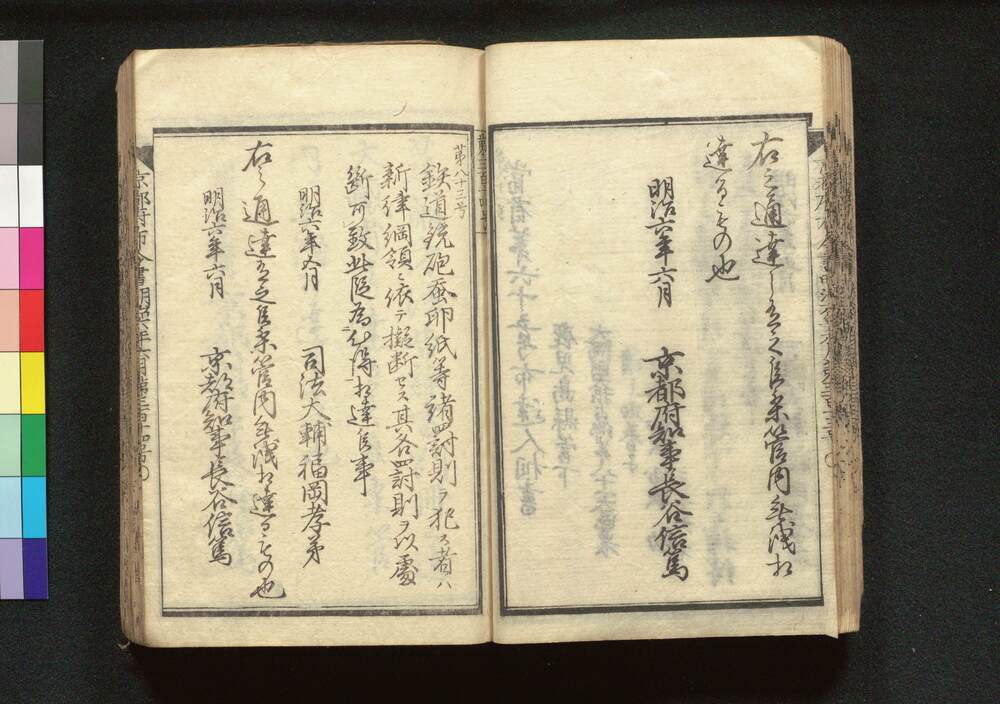 右之通達し有之候条管内無洩相
達るもの也
明治六年六月
京都府知事長谷信篤
第八十三号
鉄道銃砲蚕卵紙等諸罰則ヲ犯ス者ハ
新律綱領ニ依テ擬断セス其各罰則ヲ以処
断可致此段為心得相達候事
明治六年五月
司法大輔福岡孝弟
右之通達有之候条管内無洩相達るもの也
明治六年六月
京都府知事長谷信篤